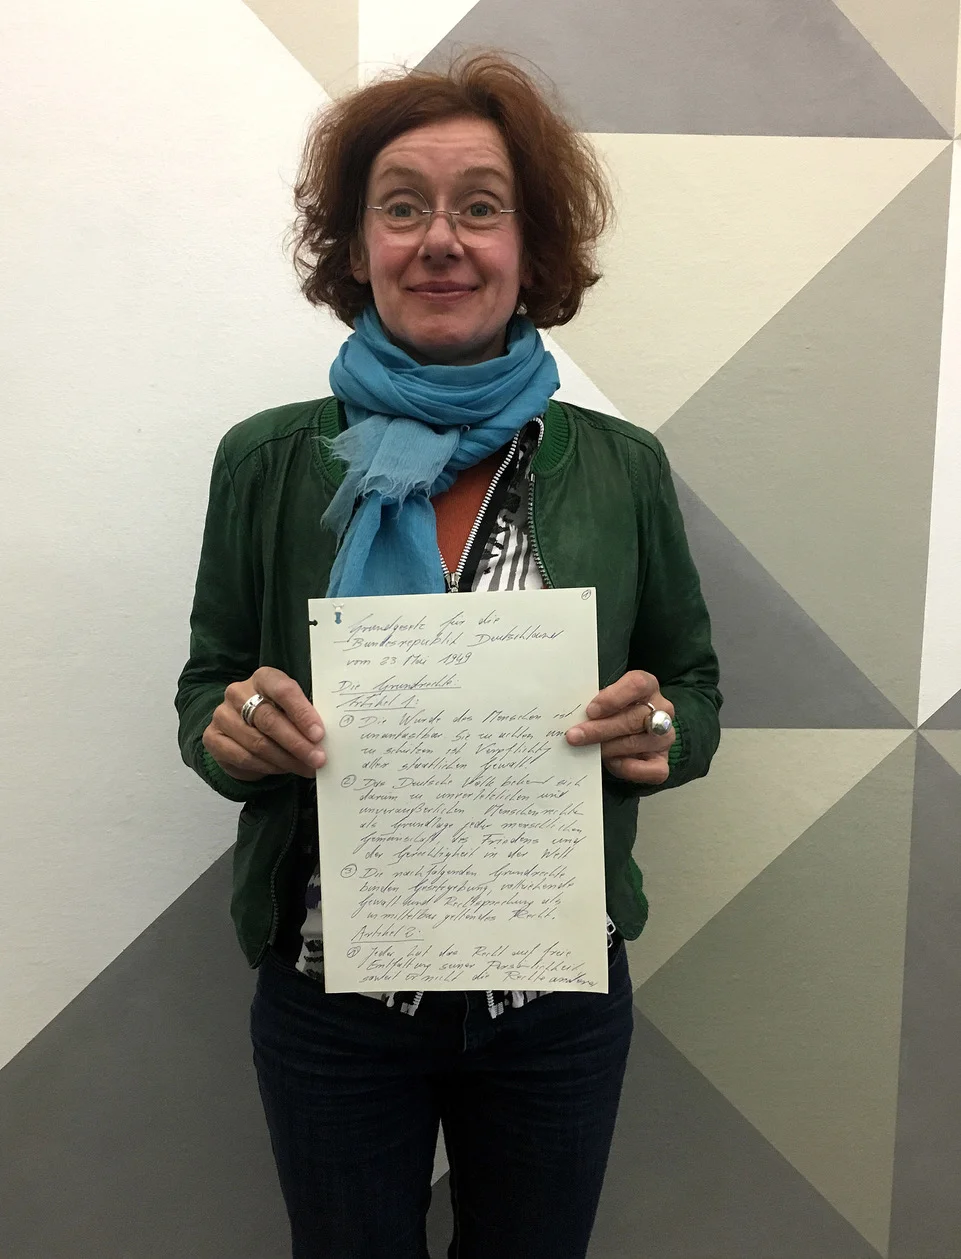 1
Grundgesetz für die
Bundesrepublik Deutschland
vom 23 Mai 1949
Die Grundrechte:
Artikel 1:
1 Die Würde des Menschen ist
unantastbar Sie zu achten und
zu schützen ist Verpflichtg
aller staatlichen Gewalt.
2 Das Deutsche Volk bekennt sich
darum zu unverletzlichen und
unveräußerlichen Menschenrechten
als Grundlage jeder menschlichen
Gemeinschaft, des Friedens und
der Gerechtigkeit in der Welt
3 Die nachfolgenden Grundrechte
binden Gesetzgebung, vollziehende
Gewalt und Rechtsprechung als
unmittelbar geltendes Recht.
Artikel 2:
1 Jeder hat das Recht auf freie
Entfaltung seiner Persönlichkeit
soweit er nicht die Rechte anderer